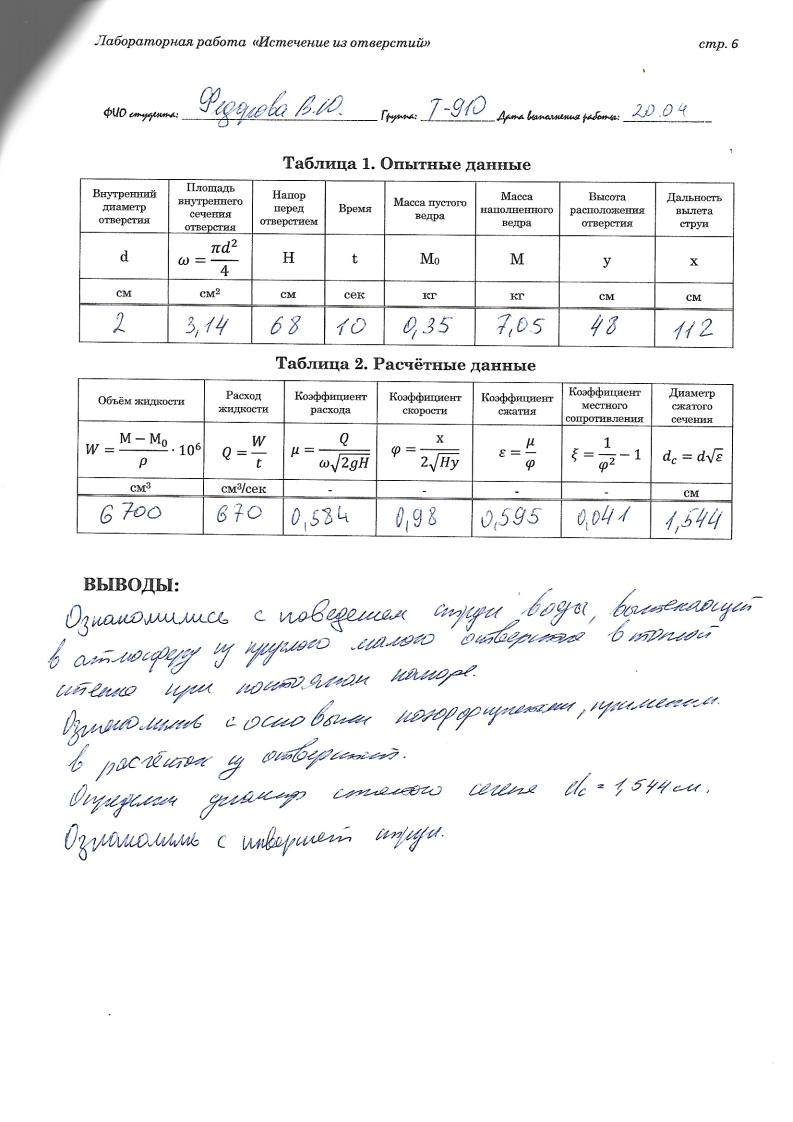 Лабораторная работа «Истечение из отверстий» стр. 6
ФИО студента: Федорова В.Ю. Группа: Т-910 Дата выполнения работы: 20.04
Таблица 1. Опытные данные
Внутренний диаметр отверстия Площадь внутреннего сечения отверстия Напор перед отверстием Время Масса пустого ведра Масса наполненного ведра Высота расположения отверстия Дальность вылета струи
d ω = πd²/4 H t M₀ M y x
см см² см сек кг кг см см
2 3,14 68 10 0,35 7,05 48 112
Таблица 2. Расчётные данные
Объём жидкости Расход жидкости Коэффициент расхода Коэффициент скорости Коэффициент сжатия Коэффициент местного сопротивления Диаметр сжатого сечения
W = (M − M₀)/ρ · 10⁶ Q = W/t μ = Q/(ω√2gH) φ = x/(2√Hy) ε = μ/φ ξ = 1/φ² − 1 d_c = d√ε
см³ см³/сек - - - - см
6700 670 0,584 0,98 0,595 0,041 1,544
ВЫВОДЫ:
Ознакомились с поведением струи воды, вытекающей
в атмосферу из круглого малого отверстия в тонкой
стенке при постоянном напоре.
Ознакомились с основными коэффициентами, применяем.
в расчётах из отверстий.
Определили диаметр сжатого сечения dc = 1,544 см.
Ознакомились с инверсией струи.